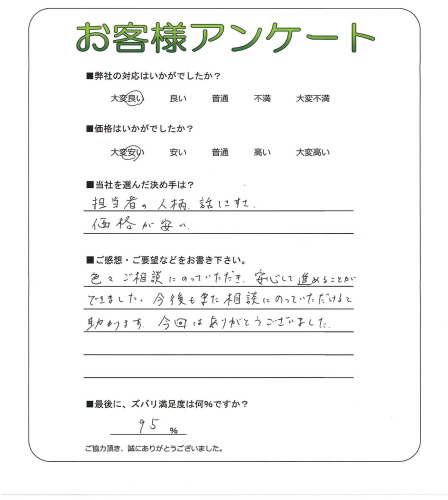 お客様アンケート
■弊社の対応はいかがでしたか？
大変良い 良い 普通 不満 大変不満
■価格はいかがでしたか？
大変安い 安い 普通 高い 大変高い
■当社を選んだ決め手は？
担当者の人柄、話しやすさ、
価格が安い、
■ご感想・ご要望などをお書き下さい。
色々ご相談にのっていただき、安心して進めることが
できました。今後もまた相談にのっていただけると
助かります。今回はありがとうございました。
■最後に、ズバリ満足度は何%ですか？
95 %
ご協力頂き、誠にありがとうございました。